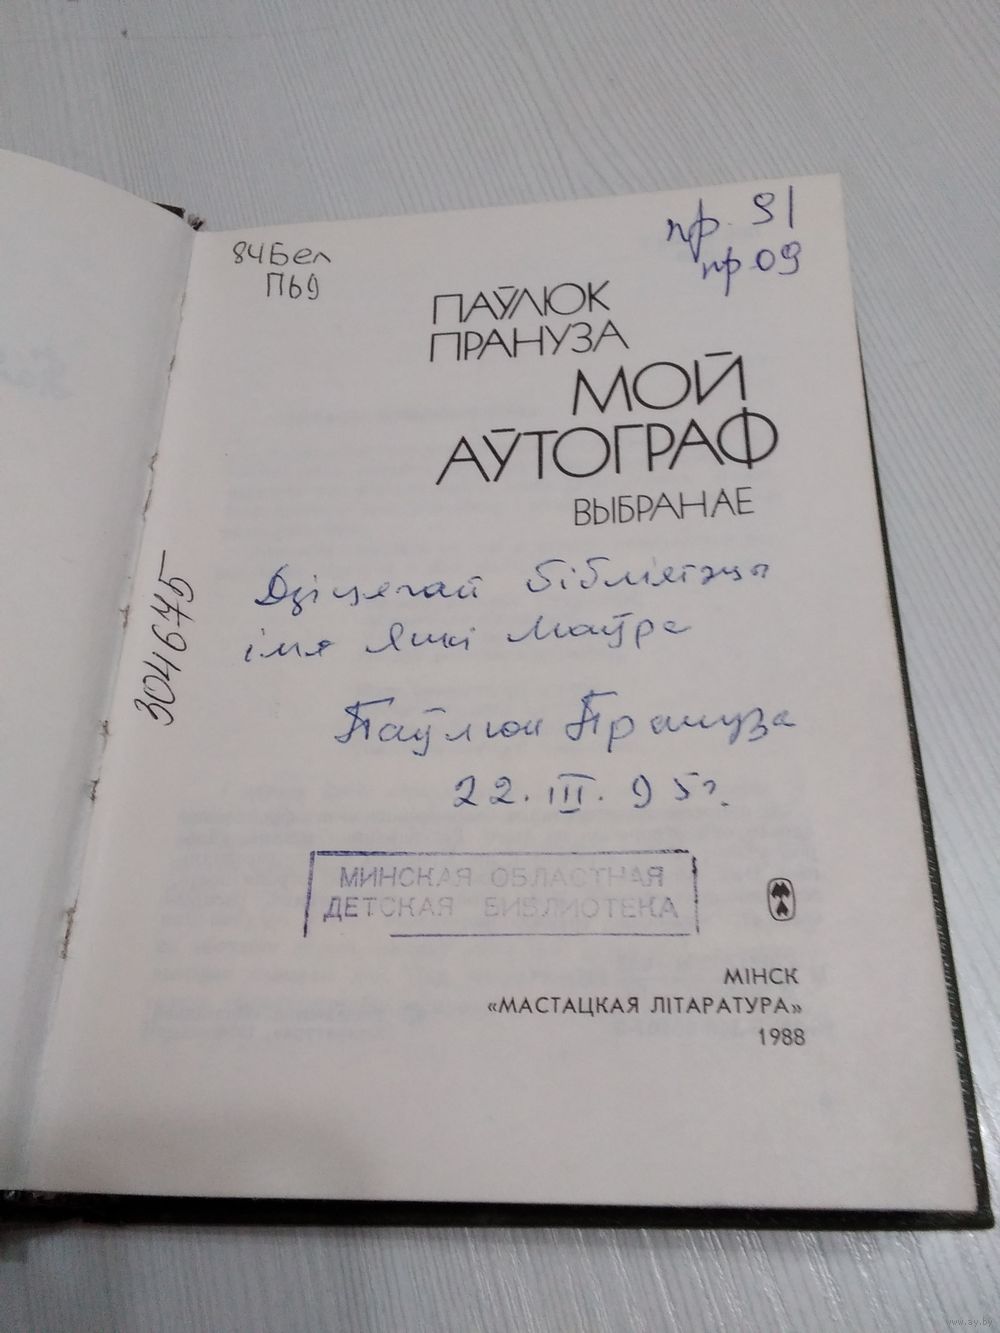 84Бел
П69
пр. 91
пр 09
ПАЎЛЮК
ПРАНУЗА
МОЙ
АЎТОГРАФ
ВЫБРАНАЕ
304675
Дзіцячай бібліятэцы
імя Янкі Маўра
Паўлюк Прануза
22. III. 95г.
МИНСКАЯ ОБЛАСТНАЯ
ДЕТСКАЯ БИБЛИОТЕКА
МІНСК
«МАСТАЦКАЯ ЛІТАРАТУРА»
1988
www.ay.by